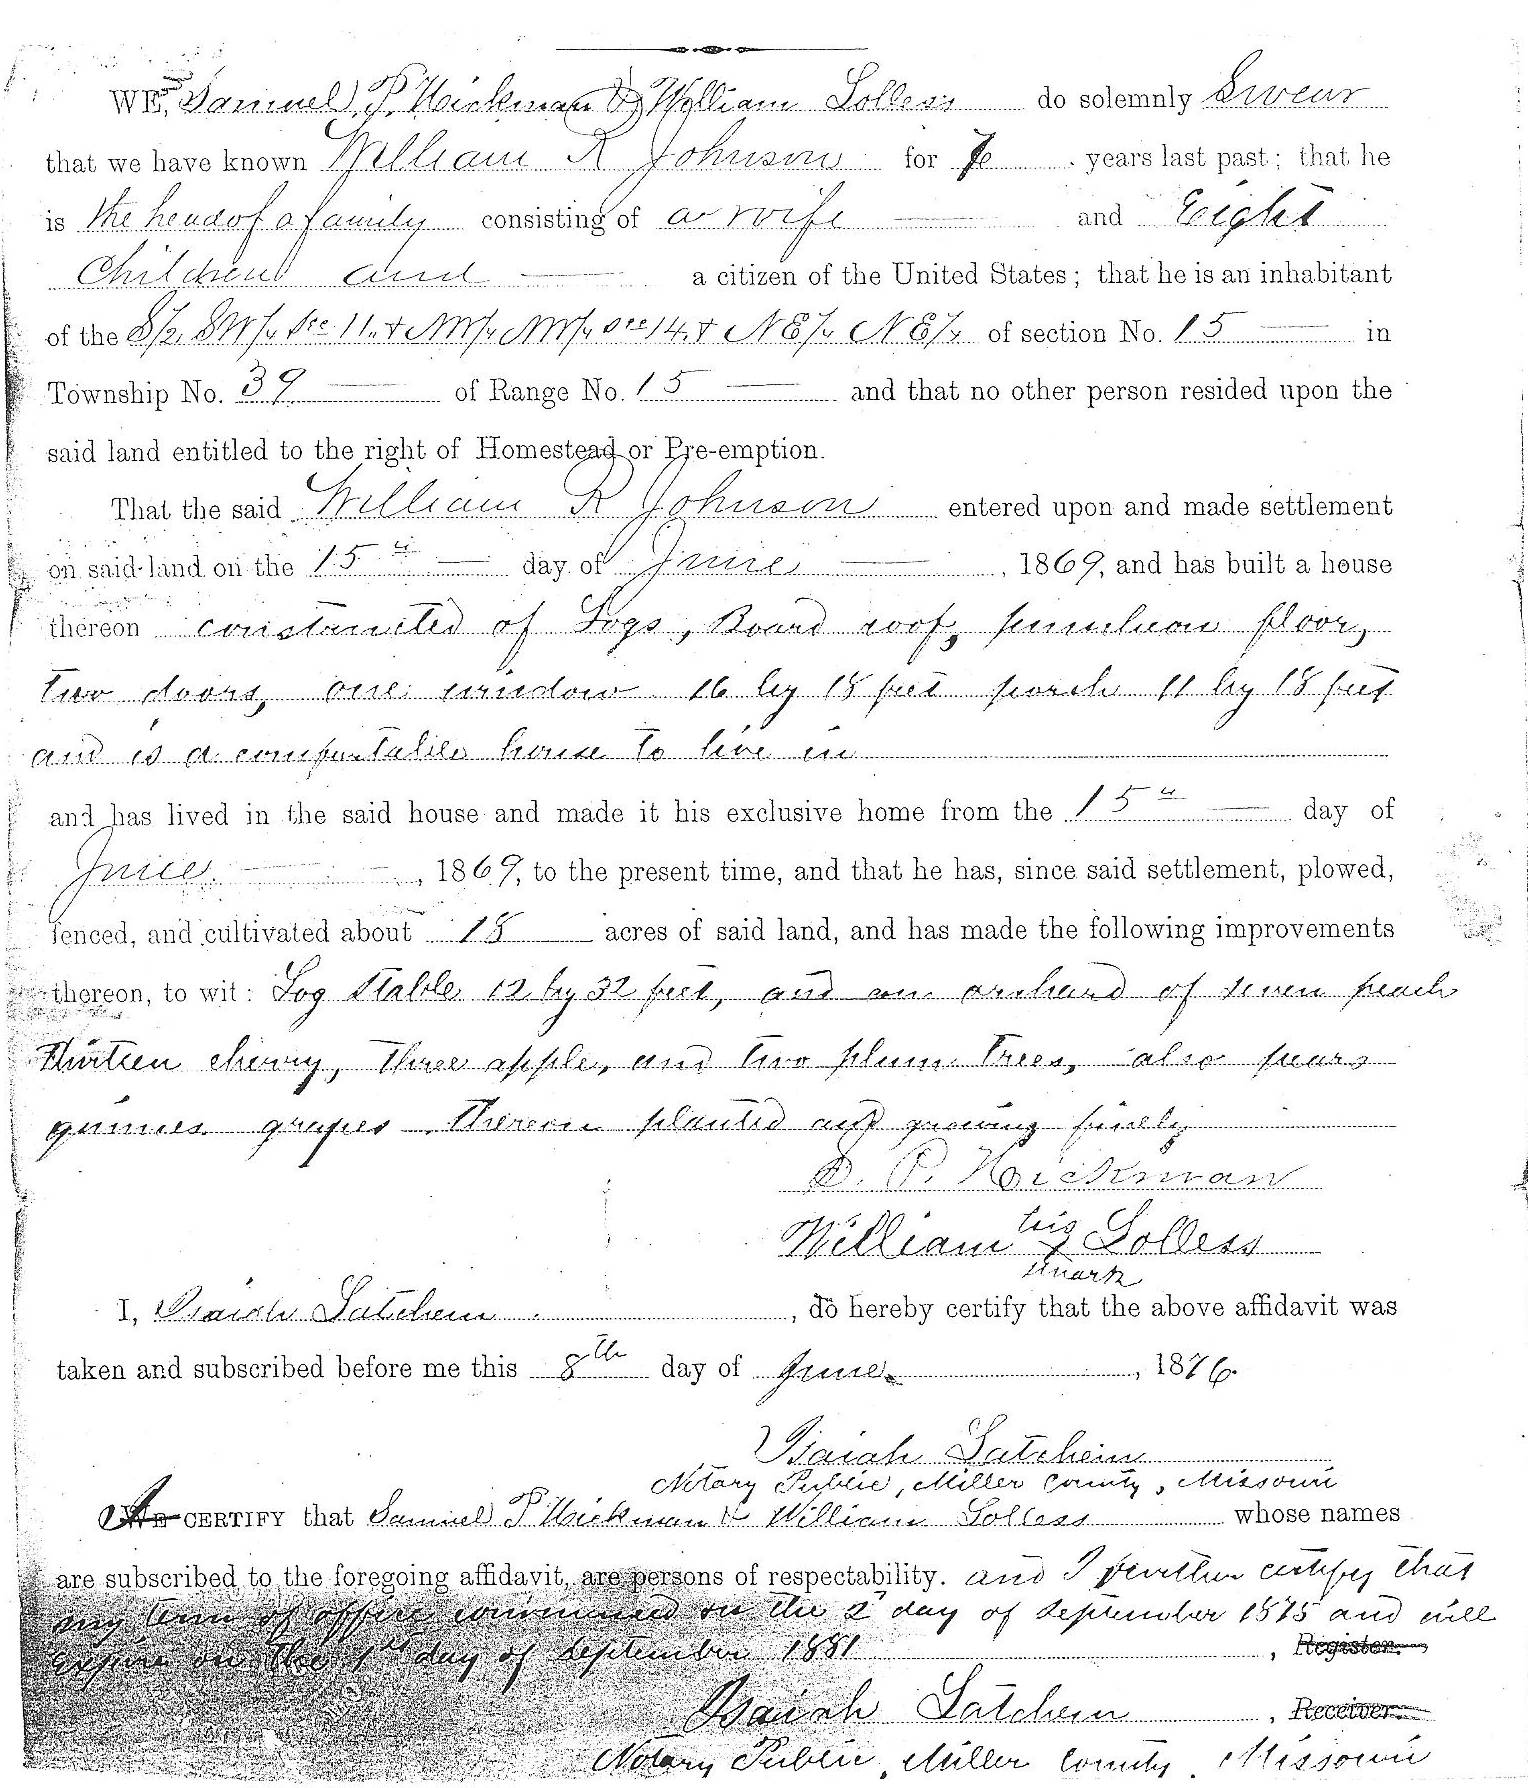 WE, Samuel P. Hickman & William Lolless do solemnly Swear
that we have known William R Johnson for years last past; that he
is the head of a family consisting of a wife and Eight
Children and a citizen of the United States; that he is an inhabitant
of the S/2 SW/4 Sec 11. & NW/4 NW/4 Sec 14. & NE/4 NE/4 of section No. 15 in
Township No. 39 of Range No. 15 and that no other person resided upon the
said land entitled to the right of Homestead or Pre-emption.
That the said William R Johnson entered upon and made settlement
on said land on the 15th day of June, 1869, and has built a house
thereon constructed of Logs, Board roof, puncheon floor,
two doors, one window 16 by 18 feet porch 11 by 18 feet
and is a comfortable house to live in
and has lived in the said house and made it his exclusive home from the 15th day of
June, 1869, to the present time, and that he has, since said settlement, plowed,
fenced, and cultivated about 18 acres of said land, and has made the following improvements
thereon, to wit: Log Stable 12 by 32 feet, and an orchard of seven peach
Thirteen cherry, Three apple, and two plum Trees, also pears
quinces grapes thereon planted and growing finely
S. P. Hickman
William his x mark Lolless
I, Isaiah Latchem, do hereby certify that the above affidavit was
taken and subscribed before me this 8th day of June, 1876.
Isaiah Latchem
Notary Public, Miller County, Missouri
I WE CERTIFY that Samuel P Hickman & William Lolless whose names
are subscribed to the foregoing affidavit, are persons of respectability. and I further certify that
my term of office commenced on the 2d day of September 1875 and will
Expire on the 1st day of September 1881, Register.
Isaiah Latchem, Receiver.
Notary Public, Miller County, Missouri